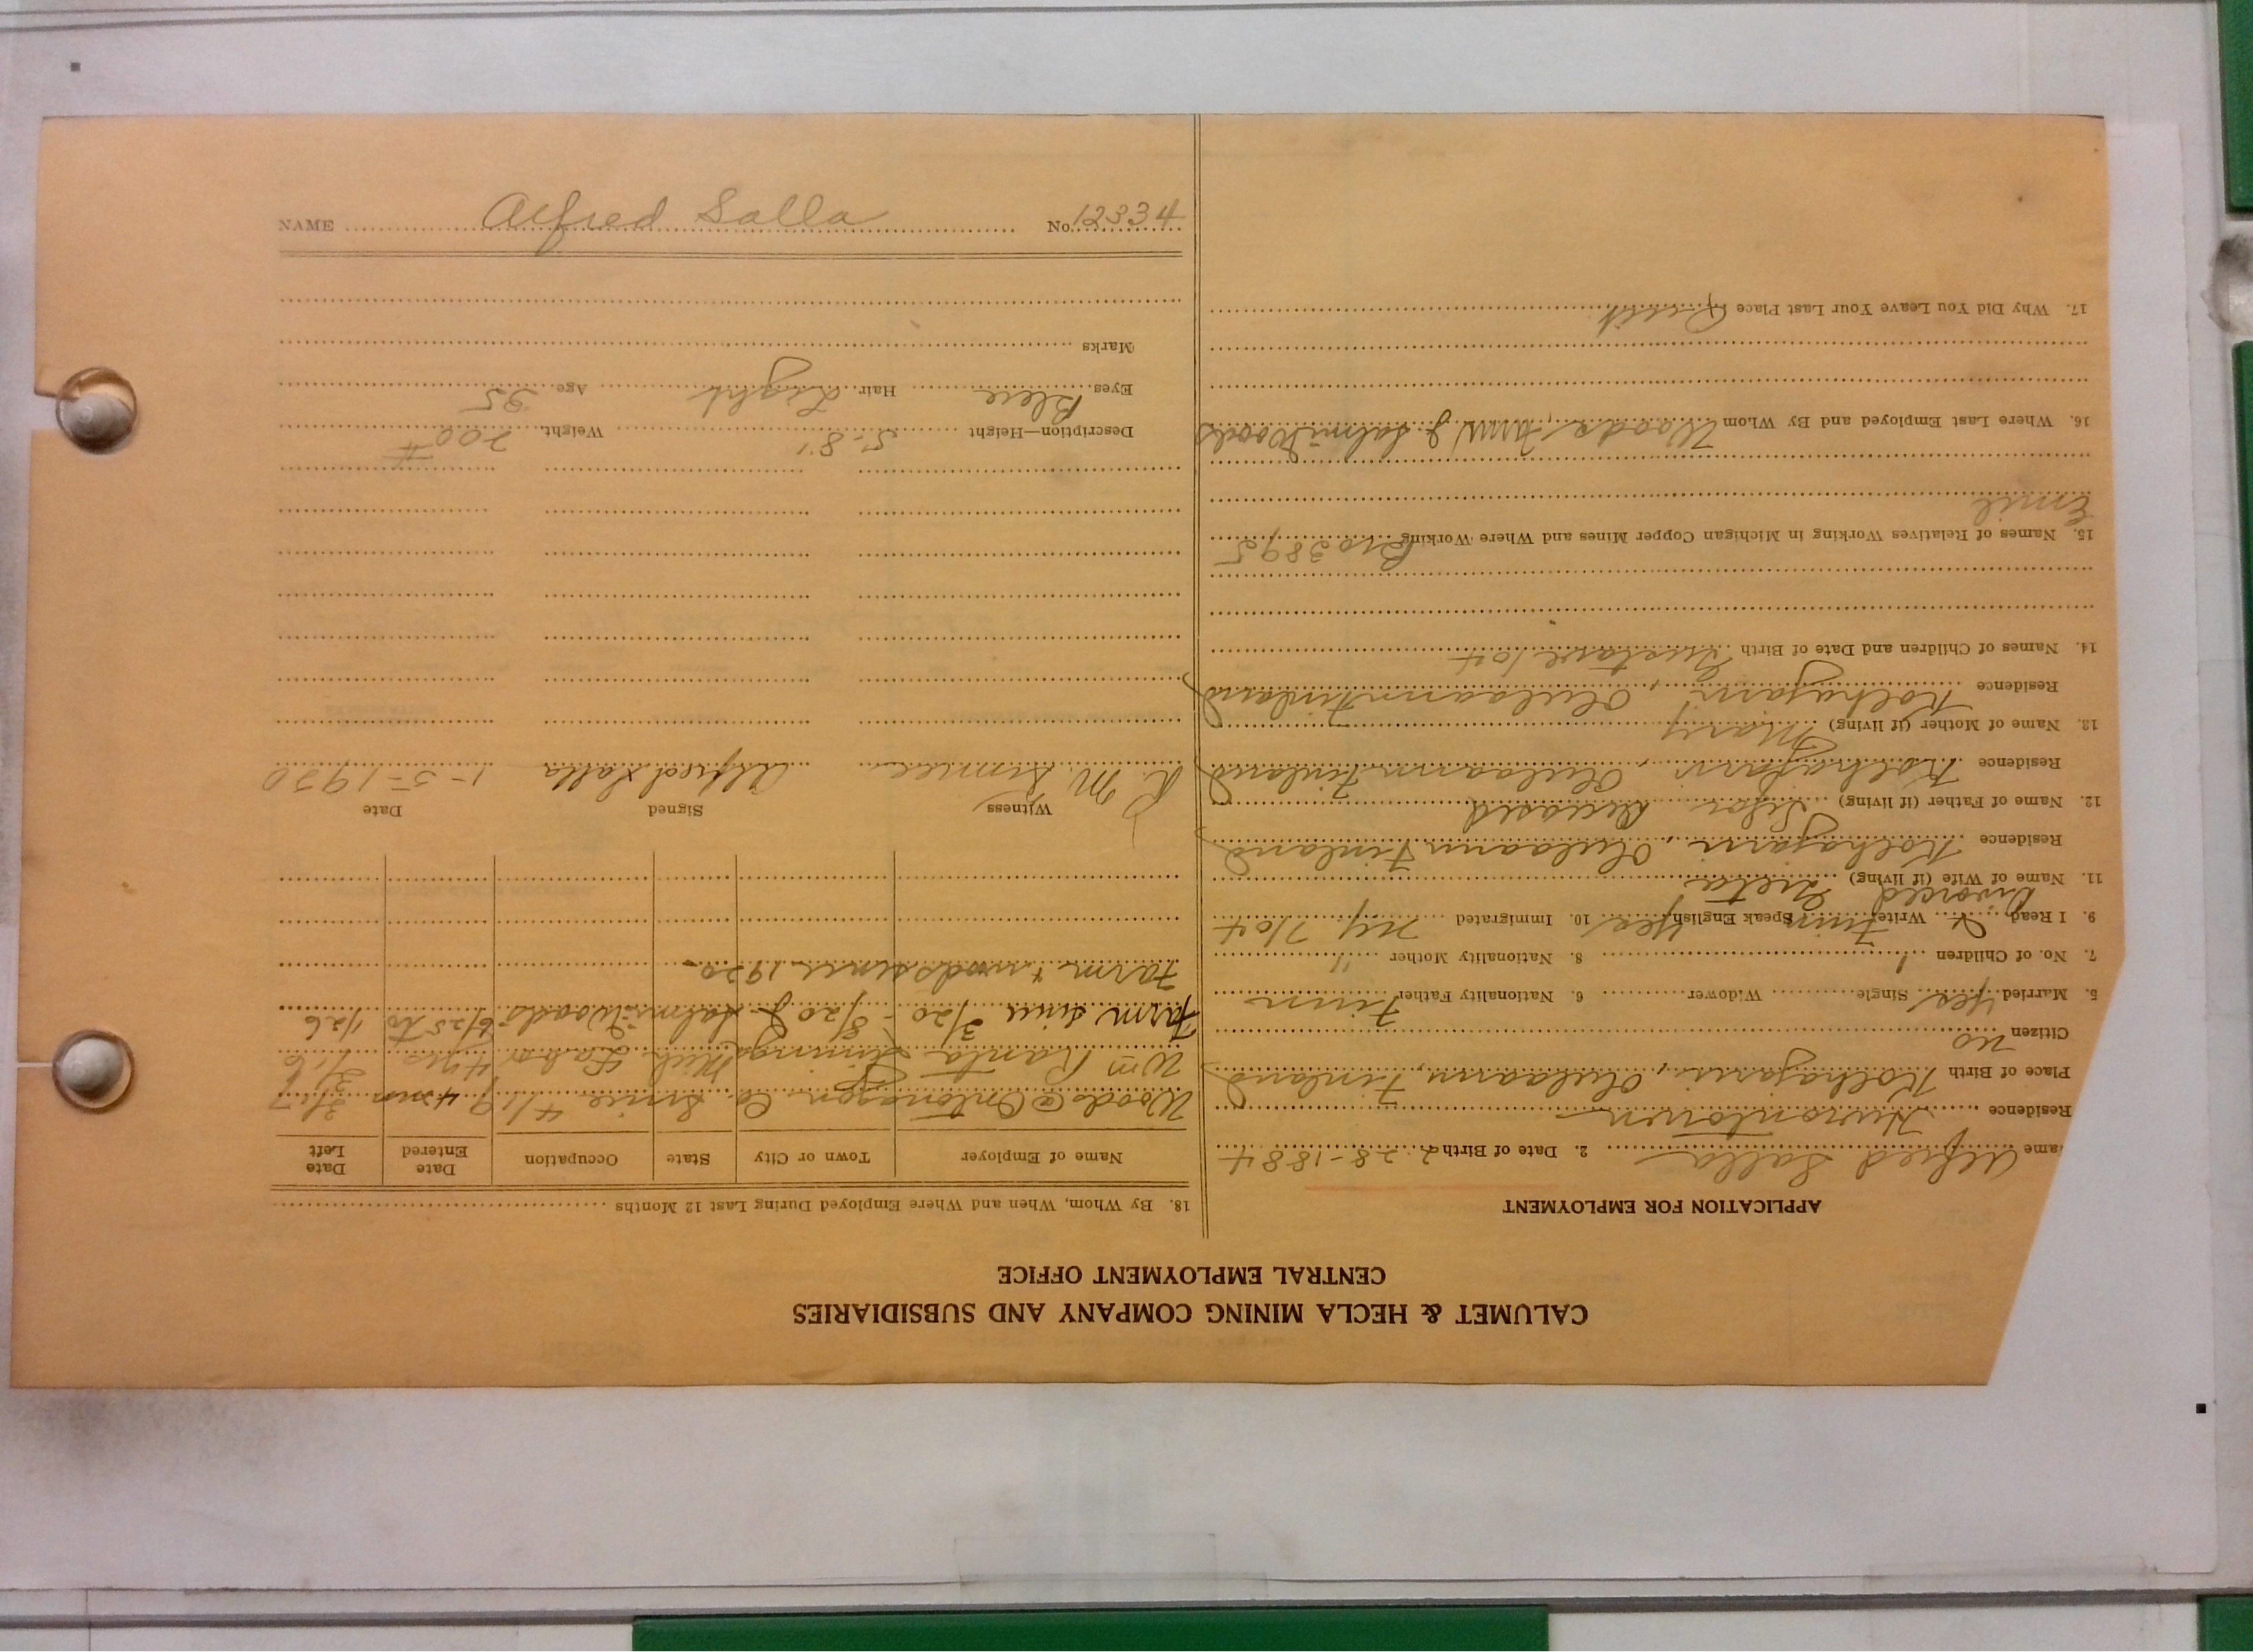 NAME Alfred Salla No. 12334
CALUMET & HECLA MINING COMPANY AND SUBSIDIARIES
CENTRAL EMPLOYMENT OFFICE
APPLICATION FOR EMPLOYMENT
ame Alfred Salla 2. Date of Birth 2-28-1884
Residence Hurontown
Place of Birth Kolhajarvi, Oulaann, Finland
Citizen no
5. Married yes Single Widower 6. Nationality Father Finn
7. No. of Children 1 8. Nationality Mother "
9. I Read & Write Finn Speak English yes 10. Immigrated NY 7/04
Divorced
11. Name of Wife (if living) Greta
Residence Kolhajarvi, Oulaann Finland
12. Name of Father (if living) Deceased
Residence Kolhajarvi, Oulaann Finland
13. Name of Mother (if living) Mary
Residence Kolhajarvi, Oulaann Finland
14. Names of Children and Date of Birth Gustave 1904
15. Names of Relatives Working in Michigan Copper Mines and Where Working Bro 3895
Emil
16. Where Last Employed and By Whom Woods, Farm J Salmi Woods
17. Why Did You Leave Your Last Place Quit
18. By Whom, When and Where Employed During Last 12 Months
Name of Employer Town or City State Occupation Date Entered Date Left
Woods @ Ontonagon Co. since 4/19 4 mos 3/17
Wm Ranta Mich Labor 4 yrs 3/16
Farm since 3/20 - 8/20 J. Salmi Woods 6/25 to 1/26
Farm & woods since 1920
Witness Signed Date
R. M. Alfred Salla 1-5-1930
Description—Height 5-8" Weight 200#
Eyes Blue Hair Light Age 35
Marks